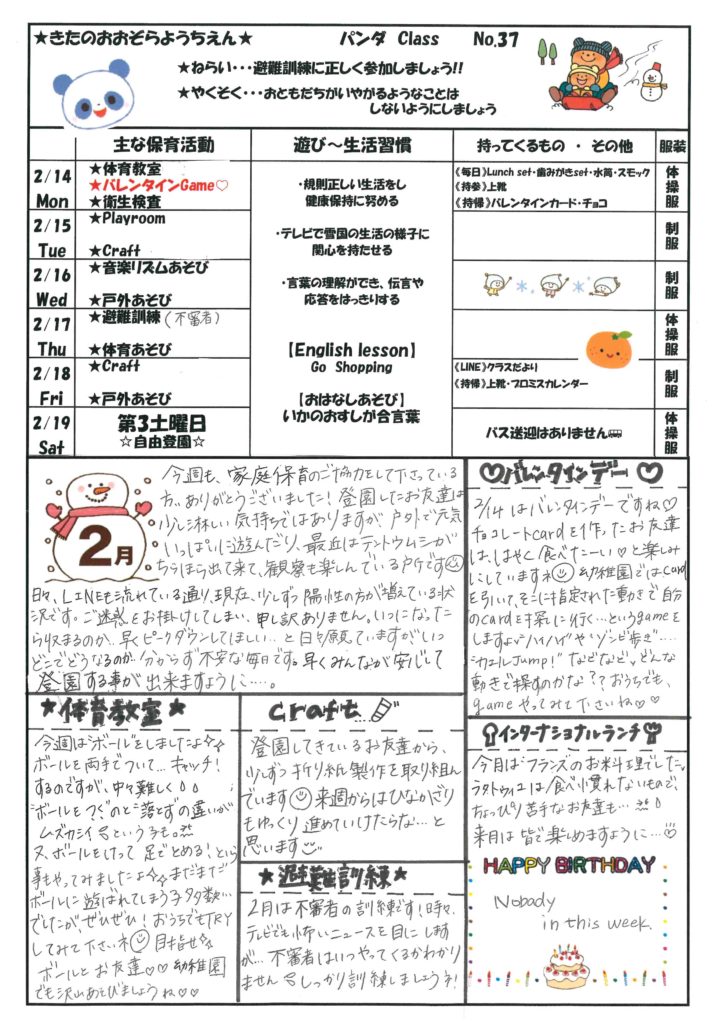 ★きたのおおぞらようちえん★ パンダ Class No.37
★ねらい・・・避難訓練に正しく参加しましょう!!
★やくそく・・・おともだちがいやがるようなことは
しないようにしましょう
主な保育活動 遊び～生活習慣 持ってくるもの ・ その他 服装
2/14 Mon
★体育教室
★バレンタインGame♡
★衛生検査
・規則正しい生活をし
健康保持に努める
《毎日》Lunch set・歯みがきset・水筒・スモック
《持参》上靴
《持帰》バレンタインカード・チョコ
体操服
2/15 Tue
★Playroom
★Craft
・テレビで雪国の生活の様子に
関心を持たせる
制服
2/16 Wed
★音楽リズムあそび
★戸外あそび
・言葉の理解ができ、伝言や
応答をはっきりする
制服
2/17 Thu
★避難訓練(不審者)
★体育あそび
【English lesson】
Go Shopping
体操服
2/18 Fri
★Craft
★戸外あそび
【おはなしあそび】
いかのおすしが合言葉
《LINE》クラスだより
《持帰》上靴・プロミスカレンダー
制服
2/19 Sat
第3土曜日
☆自由登園☆
バス送迎はありません
体操服
2月
今週も、家庭保育のご協力をして下さっている
方、ありがとうございました!登園したお友達は
少し淋しい気持ちではありますが、戸外で元気
いっぱいに遊んだり、最近はテントウムシが
ちらほら出て来て、観察も楽しんでいるPクラです
日々、LINEも流れている通り、現在、少しずつ陽性の方が増えている状
況です。ご迷惑をお掛けしてしまい、申し訳ありません。いつになった
ら収まるのか…早くピークダウンしてほしい…と日々願っていますがいつ
どこでどうなるのか…分からず不安な毎日です。早くみんなが安心して
登園する事が出来ますように…。
♡バレンタインデー♡
2/14はバレンタインデーですね♡
チョコレートcardを作ったお友達
は、はやく食べたーい♡と楽しみ
にしていますネ 幼稚園ではcard
を引いて、そこに指定された動きで自分
のcardを探しに行く…というgameを
しますよ "ハイハイ"や"ゾンビ歩き"…
"カエルJump!"などなど、どんな
動きで探すのかな??おうちでも、
gameやってみて下さいね♡♡
★体育教室★
今週はボールをしましたよ
ボールを両手でついて…キャッチ!
するのですが、中々難しく
"ボールをつく"のと"落とす"の違いが
ムズカシイという子も。
又、ボールをけって足でとめる!という
事もやってみましたよ まだまだ
ボールに遊ばれてしまう子多数…
でしたが、ぜひぜひ!おうちでもTRY
してみて下さいネ 目指せ
ボールとお友達♡♡幼稚園
でも沢山あそびましょうね♡♡
craft…
登園してきているお友達から、
少しずつ折り紙製作を取り組ん
でいます 来週からはひなかざり
もゆっくり進めていけたらな…と
思います
★避難訓練★
2月は不審者の訓練です!時々、
テレビでも怖いニュースを目にします
が…不審者はいつやってくるかわかり
ません しっかり訓練しましょうネ!
インターナショナルランチ
今月は"フランス"のお料理でした。
ラタトゥイユは食べ慣れないもので、
ちょっぴり苦手なお友達も…
来月は皆で楽しめますように…♡
HAPPY BIRTHDAY
Nobody
in this week.